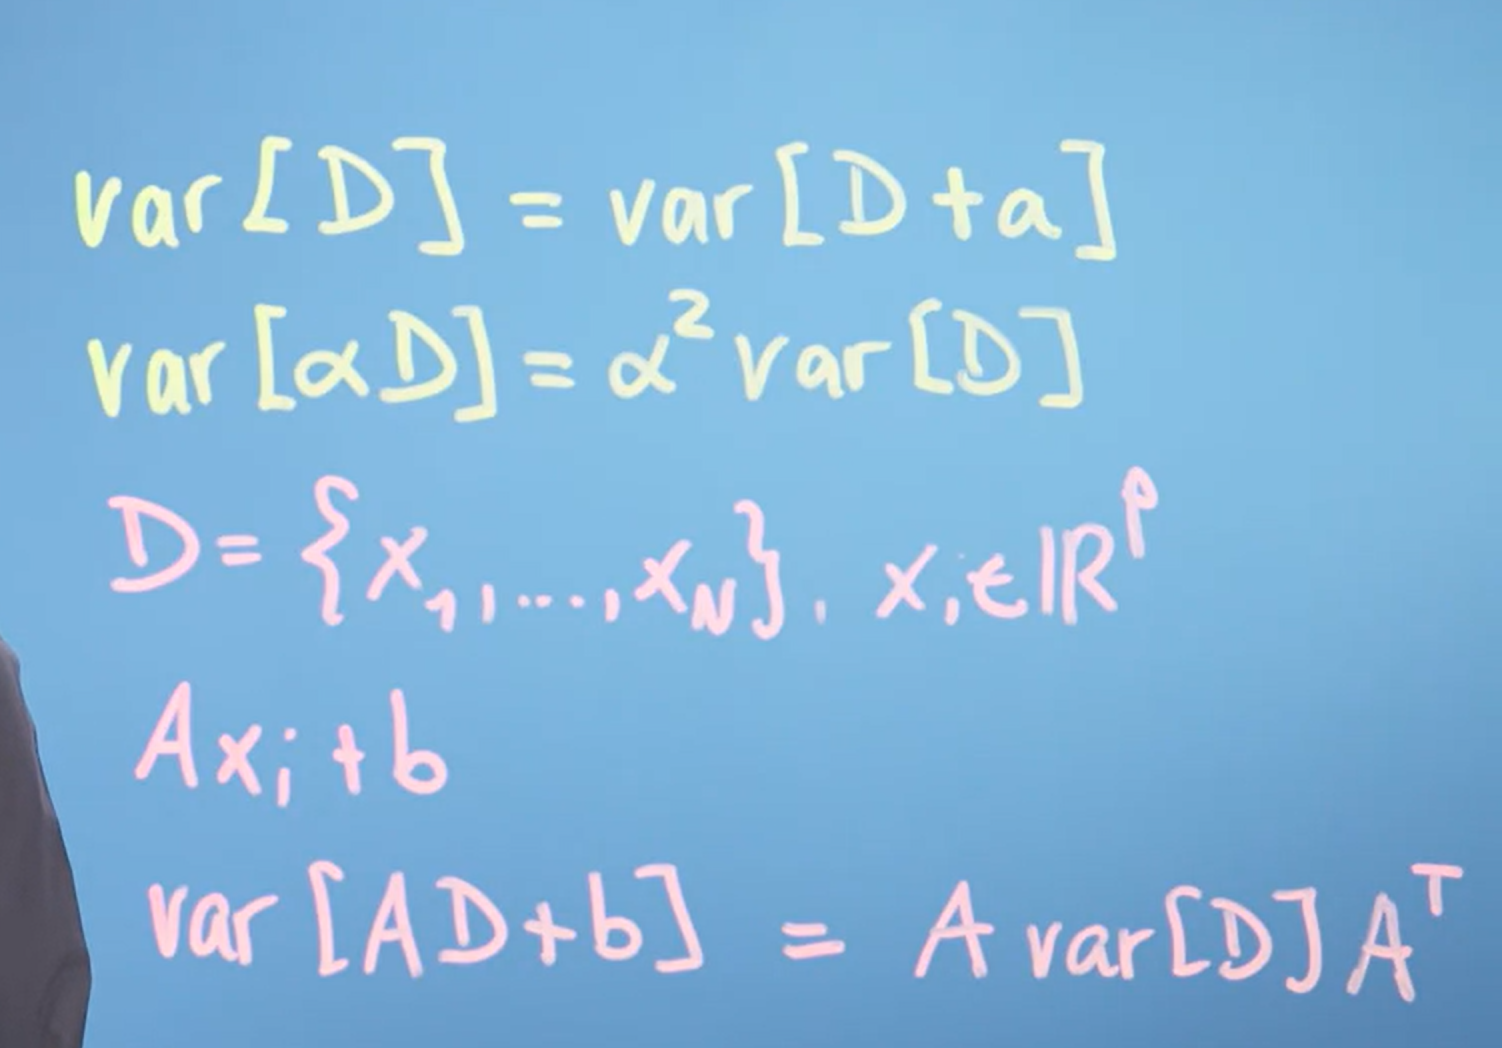 var[D] = var[D+a]
var[αD] = α² var[D]
D = {x₁,...,x_N}, xᵢ ∈ ℝᴾ
Axᵢ + b
var[AD+b] = A var[D] Aᵀ